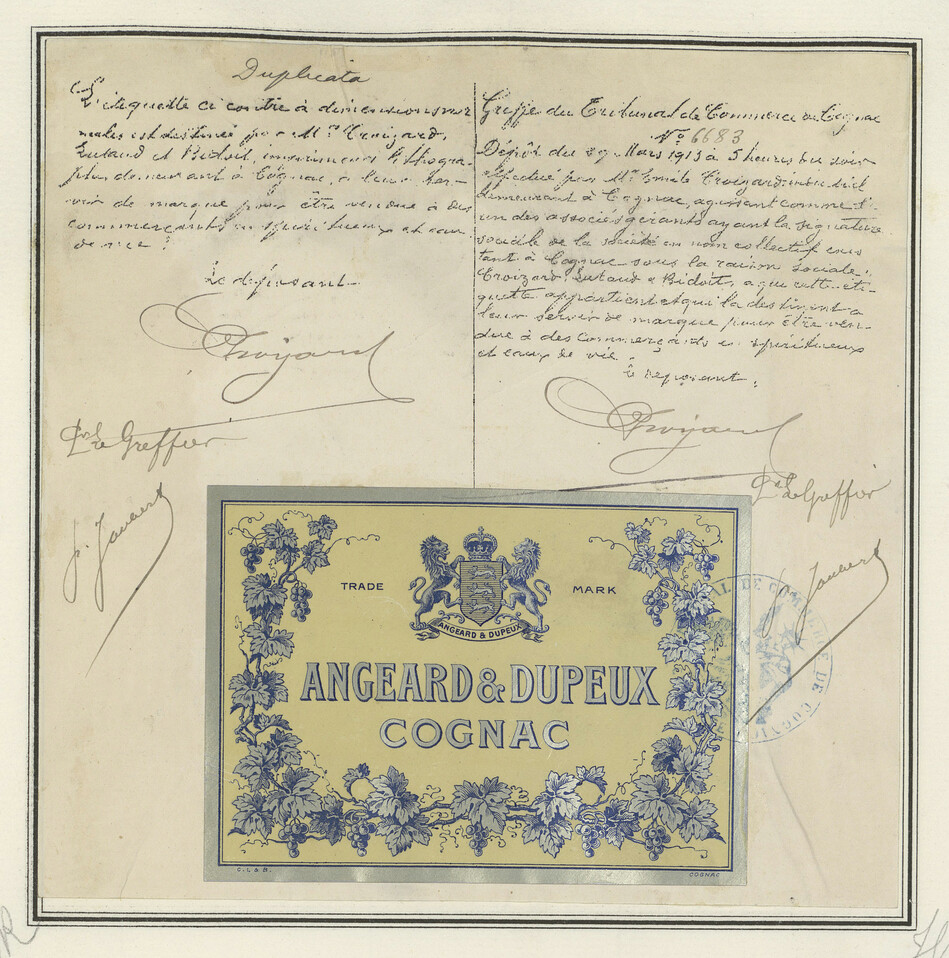 Duplicata
L'étiquette ci contre à dimensions nor
males est destinée par M.rs Croizard,
Lutaud et Bidoit, imprimeurs lithogra-
phes demeurant à Cognac, à leur ser-
vir de marque pour être vendue à des
commerçants en spiritueux et eaux
de vie.
Le déposant
Croizard
P.r le Greffier
J. Jaubert
Greffe du Tribunal de Commerce de Cognac
N.o 6683
Dépôt du 29 Mars 1913 à 5 heures du soir
effectué par M.r Emile Croizard industriel
demeurant à Cognac, agissant comme l'
un des associés gérants ayant la signature
sociale de la société en nom collectif exis
tant à Cognac sous la raison sociale:
Croizard, Lutaud & Bidoit, à qui cette éti-
quette appartient et qui la destinent à
leur servir de marque pour être ven-
due à des commerçants en spiritueux
et eaux de vie.
Le déposant.
Croizard
P.r le Greffier
Jaubert
TRADE MARK
ANGEARD & DUPEUX
ANGEARD & DUPEUX
COGNAC
C. L & B.
COGNAC
TRIBUNAL DE COMMERCE DE COGNAC